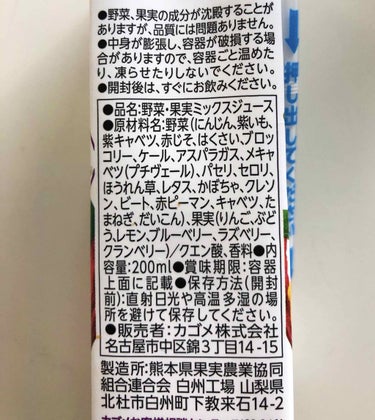 ●野菜、果実の成分が沈殿することが
ありますが、品質には問題ありません。
●中身が膨張し、容器が破損する場
合がありますので、容器ごと温めた
り、凍らせたりしないでください。
●開封後は、すぐにお飲みください。
●品名:野菜・果実ミックスジュース
●原材料名:野菜(にんじん、紫いも、
紫キャベツ、赤じそ、はくさい、ブロッ
コリー、ケール、アスパラガス、メキャ
ベツ(プチヴェール)、パセリ、セロリ、
ほうれん草、レタス、かぼちゃ、クレソ
ン、ビート、赤ピーマン、キャベツ、た
まねぎ、だいこん)、果実(りんご、ぶど
う、レモン、ブルーベリー、ラズベリー、
クランベリー)/クエン酸、香料●内
容量:200ml●賞味期限:容器
上面に記載●保存方法(開封
前):直射日光や高温多湿の場
所を避けて保存してください。
●販売者:カゴメ株式会社
名古屋市中区錦3丁目14-15
製造所:熊本県果実農業協同
組合連合会 白州工場 山梨県
北杜市白州町下教来石14-2
押し出してください